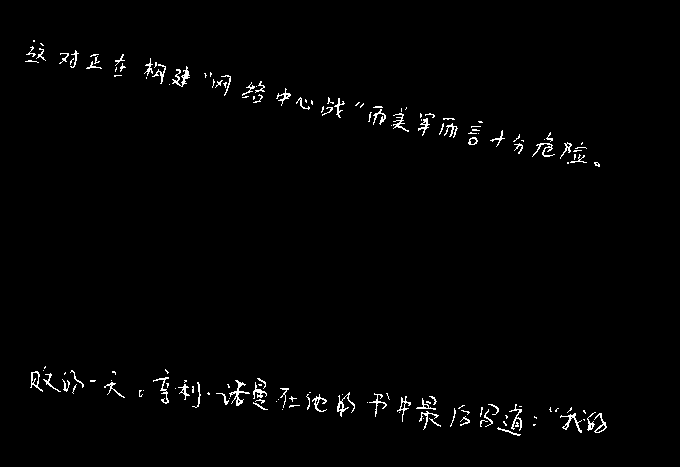 这对正在构建“网络中心战”而美军而言十分危险。
败的一天。亨利·诺曼在他的书中最后写道:“我的